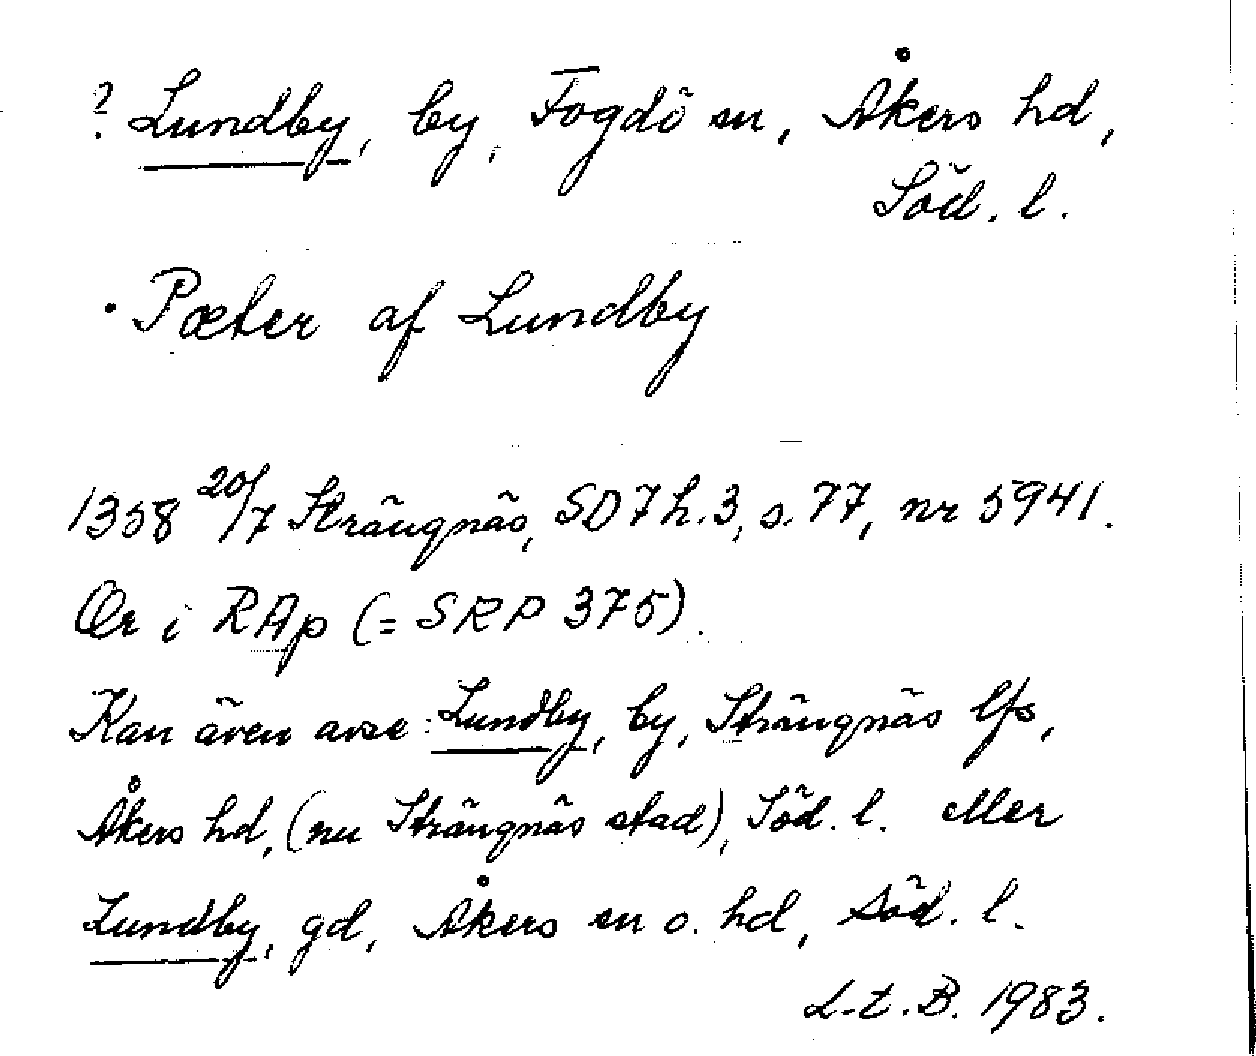 ? Lundby, by, Fogdö sn, Åkers hd,
Söd. l.
· Pæter af Lundby
1358 20/7 Strängnäs, SD7 h. 3, s. 77, nr 5941.
Or i RAp (= SRP 375).
Kan även avse: Lundby, by, Strängnäs lfs,
Åkers hd, (nu Strängnäs stad), Söd. l. eller
Lundby, gd, Åkers sn o. hd, Söd. l.
L.t.B. 1983.